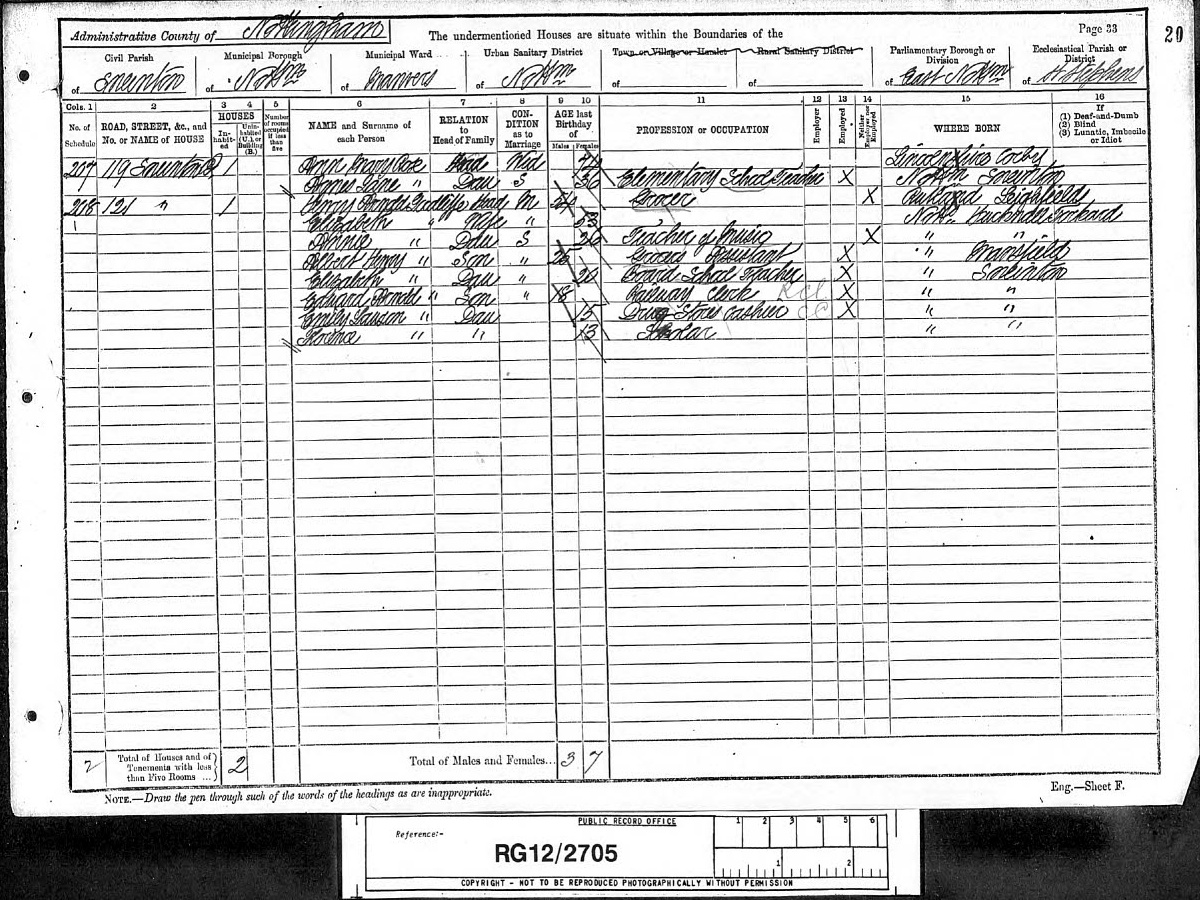 Administrative County of Nottingham The undermentioned Houses are situate within the Boundaries of the Page 33 20
Civil Parish Municipal Borough Municipal Ward Urban Sanitary District Town or Village or Hamlet Rural Sanitary District Parliamentary Borough or Division Ecclesiastical Parish or District
of Sneinton of Nottm of Manvers of Nottm of of of East Nottm of St Stephens
Cols. 1 2 3 4 5 6 7 8 9 10 11 12 13 14 15 16
No. of Schedule ROAD, STREET, &c., and No. or NAME of HOUSE HOUSES In-habit-ed Unin-habited (U.), or Building (B.) Number of rooms occupied if less than five NAME and Surname of each Person RELATION to Head of Family CON-DITION as to Marriage AGE last Birthday of Males Females PROFESSION or OCCUPATION Employer Employed Neither Employer nor Employed WHERE BORN If (1) Deaf-and-Dumb (2) Blind (3) Lunatic, Imbecile or Idiot
207 119 Sneinton 1 Ann Head Wid Lincolnshire Corby
Agnes Jane " Dau S 36 Elementary School Teacher X Nottm Sneinton
208 121 " 1 Arnold Radcliffe Head M 54 Grocer X
Elizabeth " Wife " 53 Notts
Annie " Dau S 26 Teacher of Music X " "
Albert Henry " Son " 25 Grocers Assistant X " Mansfield
Elizabeth " Dau " 20 Board School Teacher X " Sneinton
Edward Arnold " Son " 18 Railway Clerk X " "
Emily " Dau 15 Drug Stores Cashier X " "
Florence " " 13 Scholar " "
2 Total of Houses and of Tenements with less than Five Rooms ... 2 Total of Males and Females... 3 7
NOTE.—Draw the pen through such of the words of the headings as are inappropriate. Eng.—Sheet F.
PUBLIC RECORD OFFICE 1 2 3 4 5 6
Reference:-
RG12/2705
1 2
COPYRIGHT - NOT TO BE REPRODUCED PHOTOGRAPHICALLY WITHOUT PERMISSION